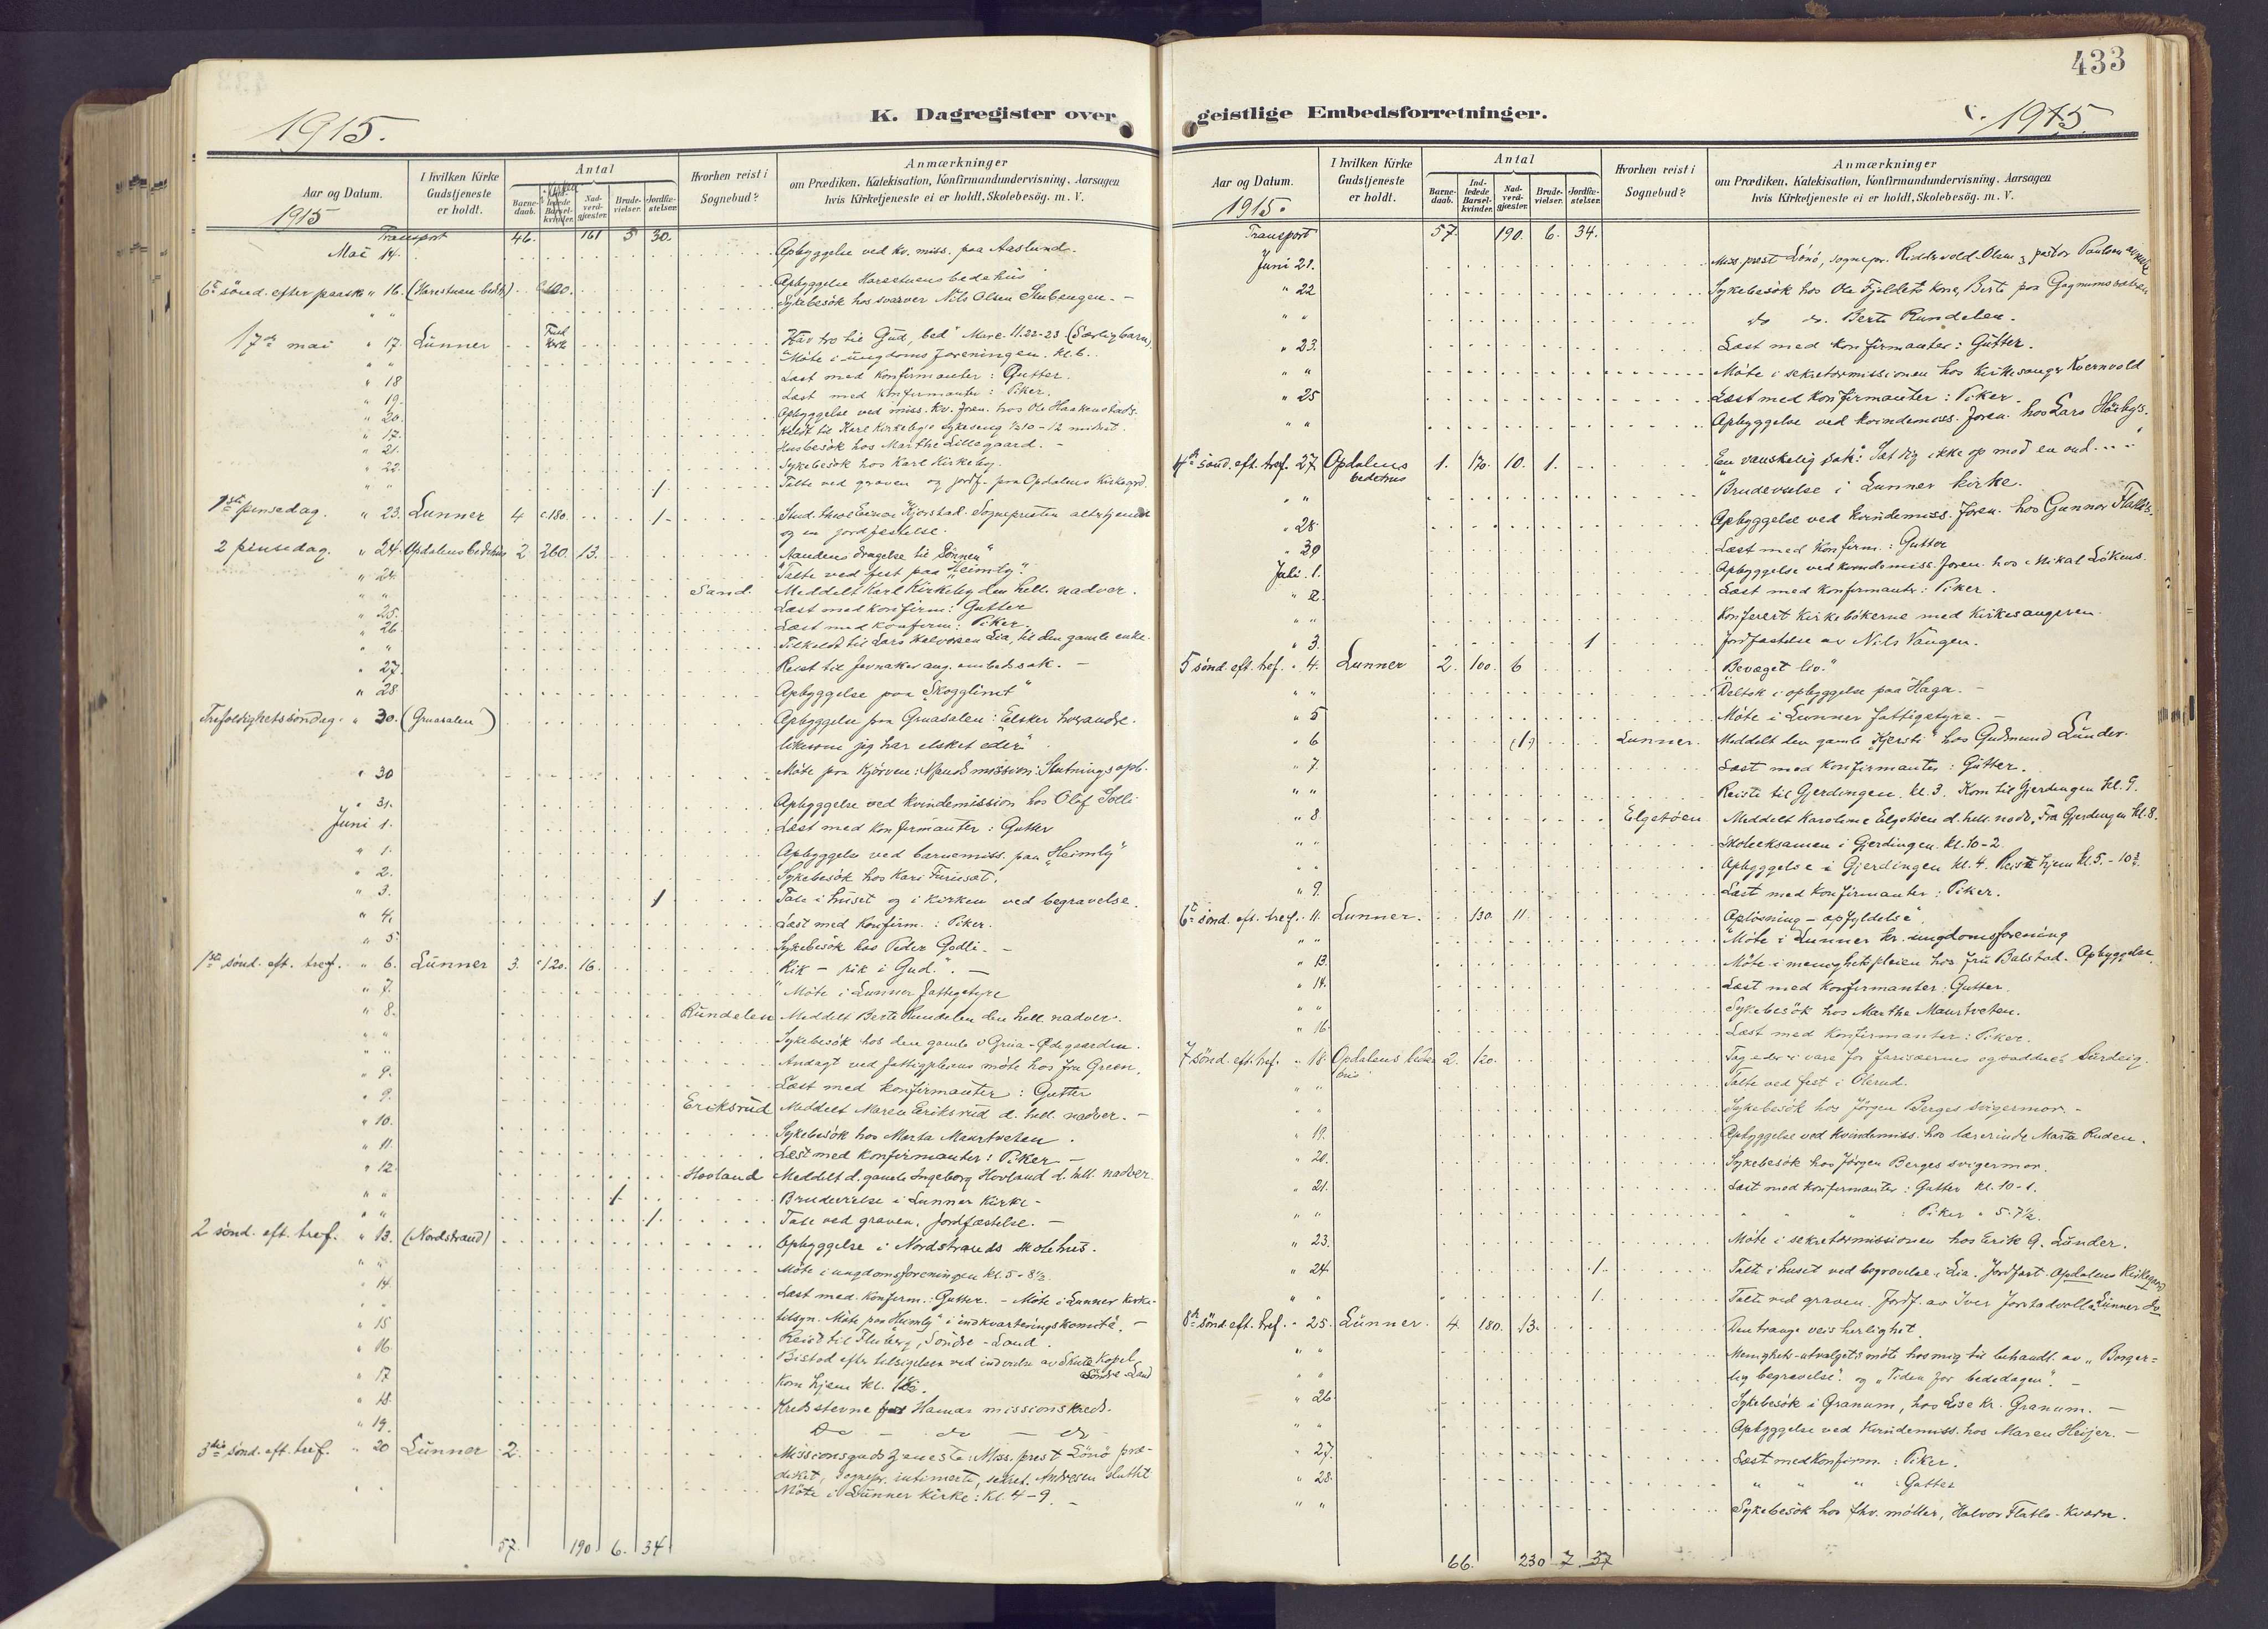 433
1915.
K. Dagregister over
geistlige Embedsforretninger.
1915.
Aar og Datum.
1915
I hvilken Kirke Gudstjeneste er holdt.
Antal
Barne-daab.
Nad-verd-gjæster.
Brude-vielser.
Jordfæ-stelser.
Hvorhen reist i Sognebud?
Anmærkninger
om Prædiken, Katekisation, Konfirmandundervisning, Aarsagen
hvis Kirketjeneste ei er holdt, Skolebesøg. m. V.
Transport 46. 161 5 30.
Mai 14. Opbyggelse ved kv. miss. paa Aaslund.
6te sønd. efter paaske " 16. (Harestuen bedeh.) c100. Opbyggelse Harestuens bedehus
" " Sykebesøk hos svarver Nils Olsen Stubengen. -
17de mai " 17. Lunner Hav tro til Gud, bed" Marc. 11.22-23 (Særlig barn)
" " Møte i ungdomsforeningen. kl. 6.
" 18 Læst med konfirmanter: Gutter.
" 19. Læst med konfirmanter: Piker.
" 20. Opbyggelse ved miss. kv. foren. hos Ole Haakenstads.
" 17. Kaldt til Karl Kirkebys sykeseng ½10-12 midnat.
" 21. Husbesøk hos Marthe Lillegaard. -
" 22. Sykebesøk hos Karl Kirkeby.
" " 1. Talte ved graven og jordf. paa Opdalens Kirkegrd.
1ste pinsedag. " 23. Lunner 4 c.180. 1. Stud. theol. Einar Kjorstad. Sognepresten altertjeneste
og en jordfæstelse.
2 pinsedag. " 24. Opdalens bedehus 2 260. 13. "Aandens dragelse til Sønnen"
" 24. Talte ved fest paa "Heimly".
" " Sand. Meddelt Karl Kirkeby den hell. nadver.
" 25. Læst med konfirm: Gutter
" 26. Læst med konfirm: Piker.
" " Tilkaldt til Lars Halvorsen Lia, til den gamle enke.
" 27. Reist til Jevnaker ang. embedssak. -
" 28 Opbyggelse paa "Skogglimt"
Trefoldighetssøndag. " 30. (Gruasalen) Opbyggelse paa Gruasalen: Elsker hverandre.
likesom jeg har elsket eder"
" 30 Møte paa Kjørven: Mandsmission: Slutningsopb.
" 31. Opbyggelse ved kvindemission hos Olaf Solli
Juni 1. Læst med konfirmanter: Gutter
" 1. Opbyggelse ved barnemiss. paa "Heimly"
" 2. Sykebesøk hos Kari Furuset.
" 3. 1 Tale i huset og i kirken ved begravelse.
" 4. Læst med konfirm.: Piker.
" 5. Sykebesøk hos Peder Godli. -
1ste sønd. eft. tref. " 6. Lunner 3. c120. 16. Rik - rik i Gud.". -
" 7. Møte i Lunner fattigstyre
" 8. Rundelen Meddelt Berte Rundelen den hell. nadver.
" " Sykebesøk hos den gamle i Grua-Ødegaarden.
" " Andagt ved fattigpleiens møte hos fru Green.
" 9. Læst med konfirmanter: Gutter
" 9. Eriksrud Meddelt Maren Eriksrud d. hell. nadver. -
" 10. Sykebesøk hos Marta Maurtveten.
" 11. Læst med konfirmanter: Piker -
" 12. Hovland Meddelt d. gamle Ingeborg Hovland d. hell. nadver.
" " 1. Brudevielse i Lunner Kirke -
" " 1. Tale ved graven. Jordfæstelse. -
2 sønd. eft. tref. " 13. (Nordstrand) Opbyggelse i Nordstrands skolehus.
" " Møte i ungdomsforeningen kl. 5-8½.
" 14 Læst med. konfirm.: Gutter. - Møte i Lunner kirke-
" " tilsyn. Møte paa "Heimly" i indkvarteringskomité. -
" 15 Reist til Fluberg, Søndre-Land.
" 16. Bistod efter tilsigelsen ved indvielse av Skute Kapel
Søndre Land
" 17 Kom hjem kl. 12.
" 18. Kredsstevne Hamar missionskreds.
" 19. Do - do - do
3die sønd. eft. tref. " 20 Lunner 2. Missionsgudstjeneste: Miss. prest Lønø præ-
diket, sognepr. intimerte, sekret. Andresen sluttet
Møte i Lunner kirke: kl. 4-9. -
57. 190 6. 34
Aar og Datum.
1915.
I hvilken Kirke Gudstjeneste er holdt.
Antal
Barne-daab.
Ind-ledede Barsel-kvinder.
Nad-verd-gjæster.
Brude-vielser.
Jordfæ-stelser.
Hvorhen reist i Sognebud?
Anmærkninger
om Prædiken, Katekisation, Konfirmandundervisning, Aarsagen
hvis Kirketjeneste ei er holdt, Skolebesøg. m. V.
Transport 57. 190. 6. 34.
Juni 21. Miss. prest Lønø, sognepr. Riddervold Olsen & pastor Paulsen
" 22 Sykebesøk hos Ole Fjeldets kone, Berte paa Gagnums
" " do do. Berte Rundelen.
" 23. Læst med konfirmanter: Gutter.
" " Møte i sekretærmissionen hos kirkesanger Kvernvold
" 25 Læst med konfirmanter: Piker.
" " Opbyggelse ved kvindemiss. foren. hos Lars Høibys.
4de sønd. eft. tref. 27. Opdalens bedehus 1. 170. 10. 1. En vanskelig sak: Sæt dig ikke op mod en ond...."
" " Brudevielse i Lunner kirke.
" 28. Opbyggelse ved kvindemiss. foren. hos Gunnar Flatla's.
" 30 Læst med konfirm.: Gutter
Juli. 1. Opbyggelse ved kvindemiss. foren. hos Mikal Løkens.
" 2. Læst med konfirmanter: Piker.
" " Konferert kirkebøkerne med kirkesangeren.
" 3. 1 Jordfæstelse av Nils Vangen.
5 sønd. eft. tref. " 4. Lunner 2. 100. 6 "Bevæget liv."
" " Deltok i opbyggelse paa Haga. -
" 5 Møte i Lunner fattigstyre. -
" 6 (1.) Lunner. Meddelt den gamle "Kjersti" hos Gudmund Lunder.
" 7. Læst med konfirmanter: Gutter.
" " Reiste til Gjerdingen. kl. 3. Kom til Gjerdingen kl. 9.
" 8 Elgstøen Meddelt Karoline Elgstøen d. hell. nadv. Fra Gjerdingen kl. 8.
" " Skoleeksamen i Gjerdingen. kl. 10-2
" " Opbyggelse i Gjerdingen kl. 4. Reiste hjem kl. 5.-10
" 9. Læst med konfirmanter: Piker.
6te sønd. eft. tref. " 11. Lunner. 130. 11. Opløsning - opfyldelse"
" " Møte i Lunner kr. ungdomsforening
" 13. Møte i menighetspleien hos fru Balstad. Opbyggelse
" 14. Læst med konfirmanter: Gutter.
" " Sykebesøk hos Marthe Maurtveten.
" 16. Læst med konfirmanter: Piker.
7 sønd. eft. tref. " 18. Opdalens bedehus 2. 120. Tag eder i vare for farisæernes og sadduc. surdeig.
" " Talte ved fest i Olerud.
" " Sykebesøk hos Jørgen Berges svigermor. -
" 19. Opbyggelse ved kvindemiss. hos lærerinde Marta Ruden.
" 20. Sykebesøk hos Jørgen Berges svigermor.
" 21. Læst med konfirmanter: Gutter kl. 10-1.
" " " " " : Piker " 5-7½.
" 23. Møte i sekretærmissionen hos Erik G. Lunder.
" 24 1. Talte i huset ved begravelse i Lia. Jordfæst. Opdalens Kirkegaard
" " 1. Talte ved graven. Jordf. av Iver Lunner do
8de sønd. eft. tref. " 25. Lunner. 4. 180. 13. Den trange veis herlighet.
" " Menighets-utvalgets møte hos mig til behandl. av "Borger-
" " lig begravelse". og "Tiden for bededagen". -
" 26 Sykebesøk i Granum, hos Lise Kr. Granum. -
" " Opbyggelse ved kvindemiss. hos Maren Heijer. -
" 27. Læst med konfirm.: Piker.
" 28. " " " : Gutter
" " Sykebesøk hos fhv. møller, Halvor Flatla-Kværn.
66. 230 7. 37